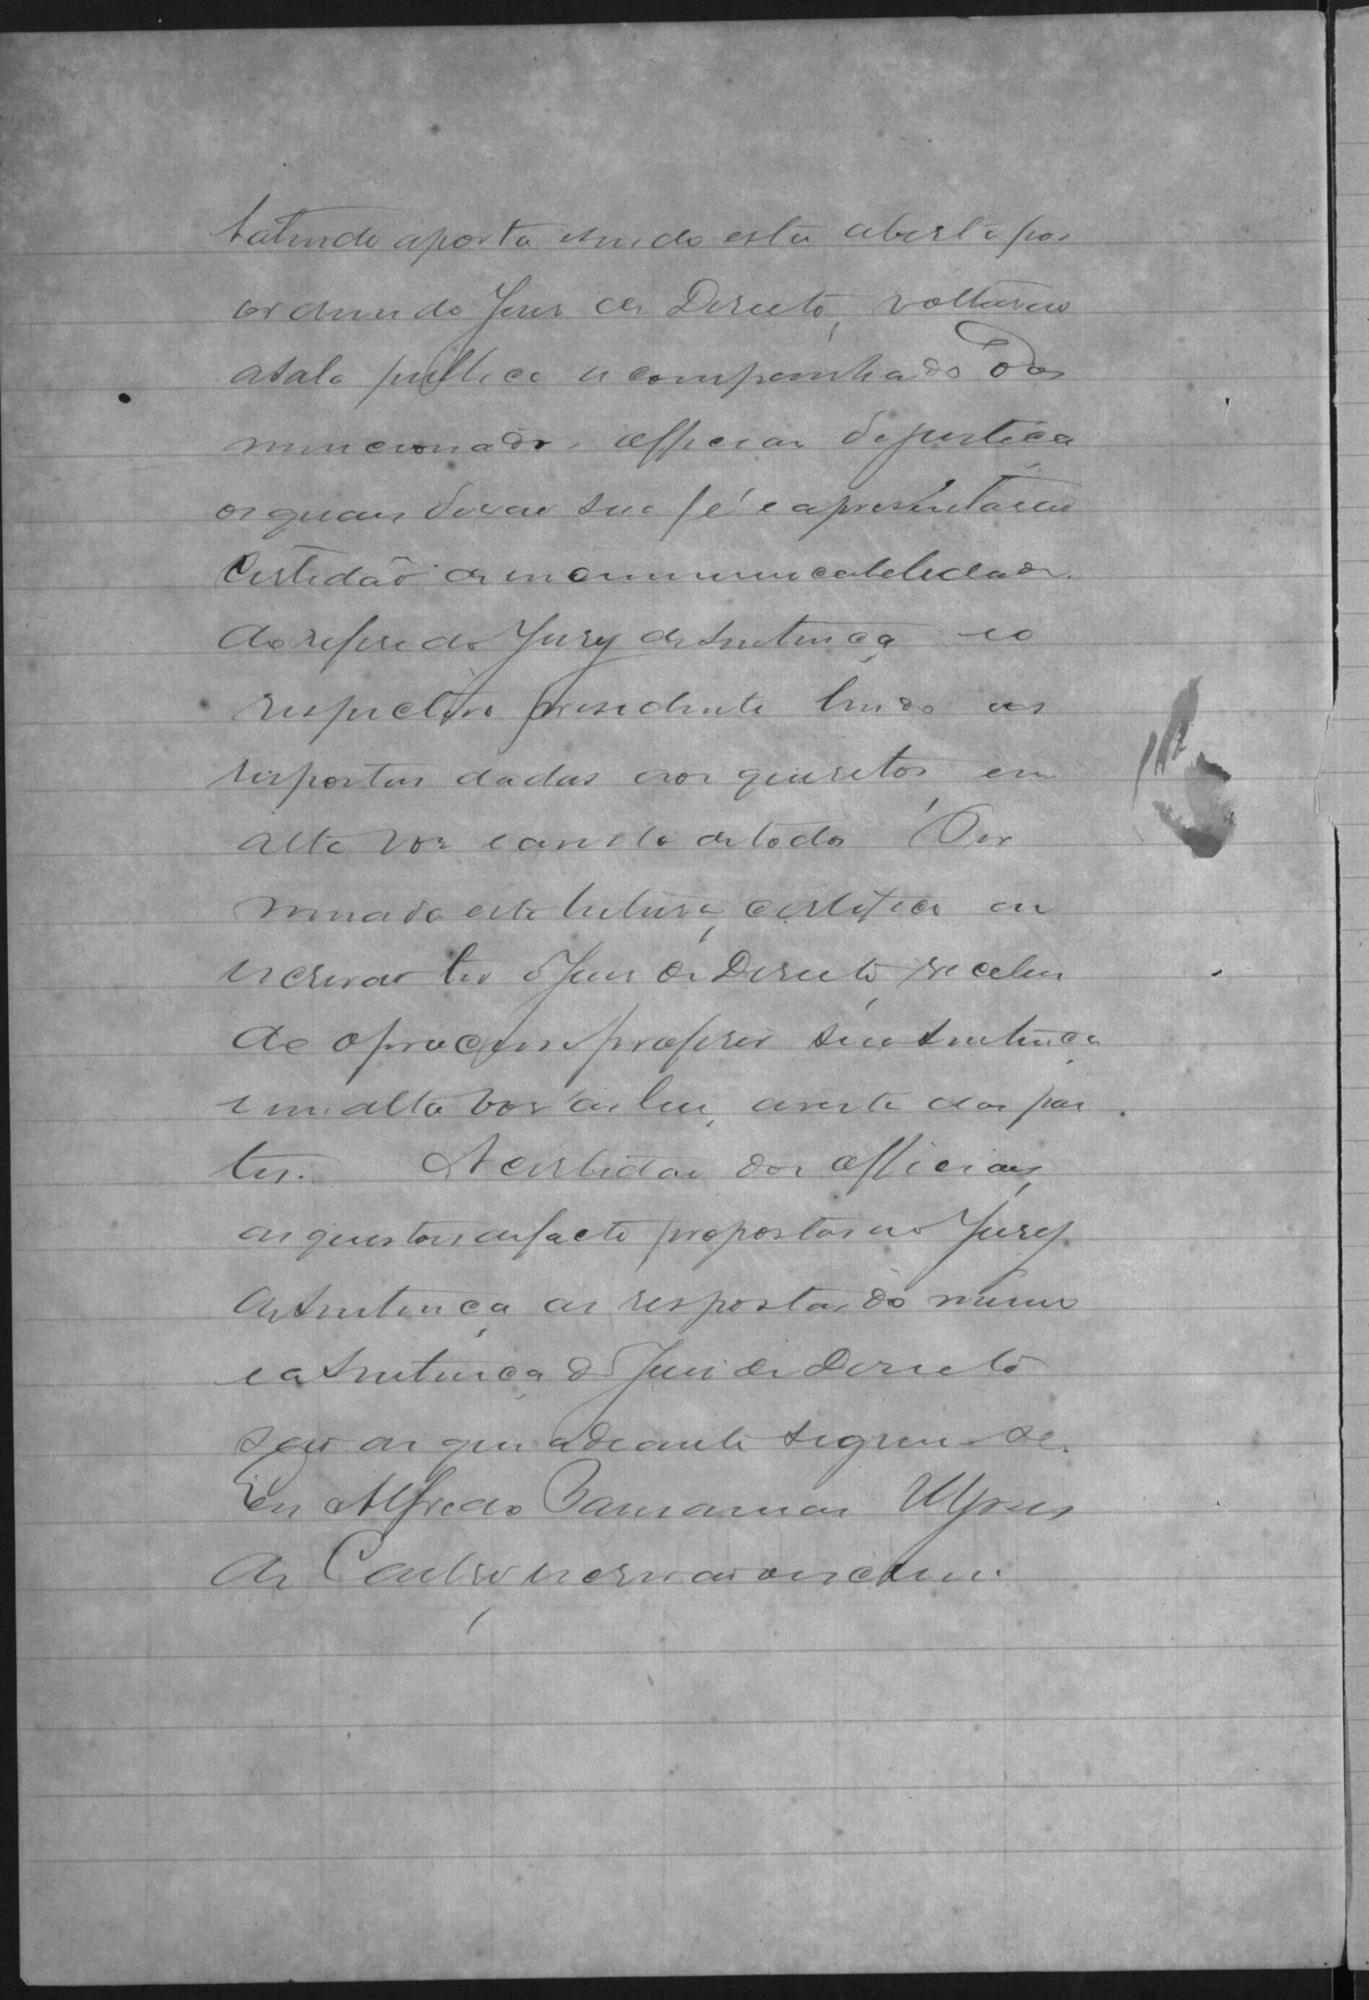 batendo a porta sendo esta aberta por
ordem do Juiz de Direito, voltarão
a sala publica acompanhado dos
mencionados officiaes de justiça
os quaes derão sua fé e apresentarão
Certidão de incommunicabilidade
do referido Jury de sentença e o
respectivo presidente lendo as
respostas dadas aos quesitos em
alta voz e ouvida de todos Ter
minada esta leitura, certifico eu
escrivão ter o Juiz de Direito receben
do o processo proferir sua sentença
e em alta voz a leu, avista das par
tes. A certidão dos officiaes,
as questões de facto propostas ao Jury
de sentença as respostas do mesmo
e a sentença do Juiz de Direito
são as que adeante seguem-se.
Eu Alfredo Ulysses
de Castro escrivão escrevi.